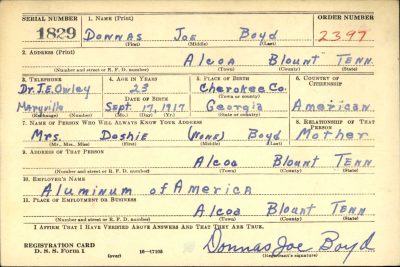 SERIAL NUMBER 1. NAME (Print) ORDER NUMBER
1829 Donnas Joe Boyd 2397
(First) (Middle) (Last)
2. ADDRESS (Print)
Alcoa Blount Tenn.
(Number and street or R. F. D. number) (Town) (County) (State)
3. TELEPHONE 4. AGE IN YEARS 5. PLACE OF BIRTH 6. COUNTRY OF CITIZENSHIP
Dr. J.E. Owley 23 Cherokee Co.
DATE OF BIRTH (Town or county)
Maryville Sept. 17, 1917 Georgia American
(Exchange) (Number) (Mo.) (Day) (Yr.) (State or country)
7. NAME OF PERSON WHO WILL ALWAYS KNOW YOUR ADDRESS 8. RELATIONSHIP OF THAT PERSON
Mrs. Doshie (None) Boyd Mother
(Mr., Mrs., Miss) (First) (Middle) (Last)
9. ADDRESS OF THAT PERSON
Alcoa Blount Tenn
(Number and street or R. F. D. number) (Town) (County) (State)
10. EMPLOYER'S NAME
Aluminum of America
11. PLACE OF EMPLOYMENT OR BUSINESS
Alcoa Blount Tenn
(Number and street or R. F. D. number) (Town) (County) (State)
I AFFIRM THAT I HAVE VERIFIED ABOVE ANSWERS AND THAT THEY ARE TRUE.
REGISTRATION CARD
D. S. S. Form 1 (over) 16—17105 Donnas Joe Boyd
(Registrant's signature)